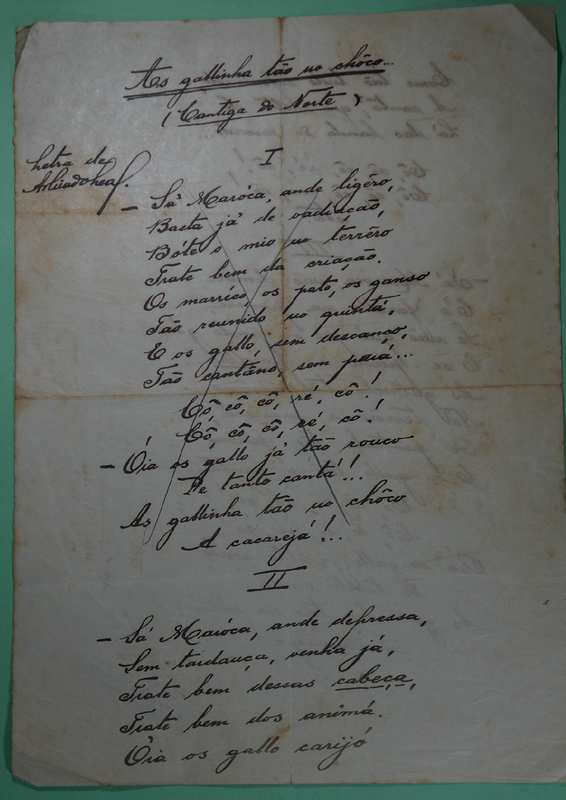 As gallinha tão no chôco...
(Cantiga do Norte)
I
Letra de
Arlindo Leal.
— Sá Maróca, ande ligêro,
Basta já de vadiação,
Bóte o mio no terrêro
Trate bem da criação.
Os marréco, os pato, os ganso
Tão reunido no quintá,
E os gallo, sem descanço,
Tão cantâno, sem pará...
Cô, cô, cô, ré, cô!
Cô, cô, cô, ré, cô!
— Óia os gallo já tão rouco
De tanto cantá!!
As gallinha tão no chôco
A cacarejá!..
II
— Sá Maróca, ande depressa,
Sem tardança, venha já,
Trate bem dessas cabeça,
Trate bem dos animá.
Óia os gallo carijó